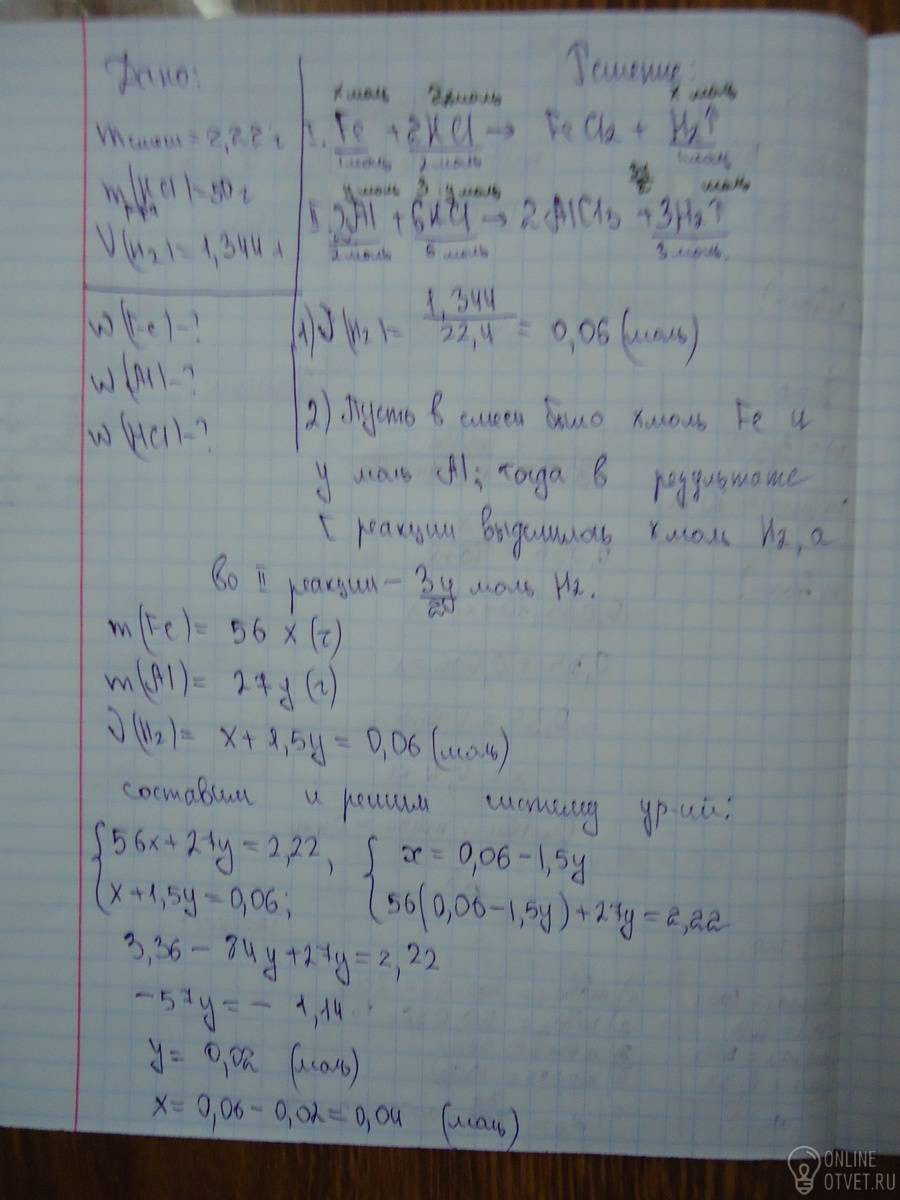 Дано:
mсмеси = 2,22 г
m р-ра (HCl) = 50 г
V(H2) = 1,344 л
w(Fe) - ?
w(Al) - ?
w(HCl) - ?
Решение:
x моль 2x моль x моль
I. Fe + 2HCl → FeCl2 + H2↑
1моль 2 моль 1моль
y моль 3 y моль 3y/2 моль
II. 2Al + 6HCl → 2AlCl3 + 3H2↑
2моль 6 моль 3 моль.
1) ν(H2) = 1,344/22,4 = 0,06 (моль)
2) Пусть в смеси было x моль Fe и
y моль Al; тогда в результате
I реакции выделилось x моль H2, а
во II реакции - 3y/2 моль H2.
m(Fe) = 56 x (г)
m(Al) = 27 y (г)
ν(H2) = x + 1,5y = 0,06 (моль)
составим и решим систему ур-ий:
{ 56x + 27y = 2,22, { x = 0,06 - 1,5y
x + 1,5y = 0,06; 56(0,06 - 1,5y) + 27y = 2,22
3,36 - 84y + 27y = 2,22
-57y = - 1,14
y = 0,02 (моль)
x = 0,06 - 0,02 = 0,04 (моль)
ONLINE
OTVET.RU